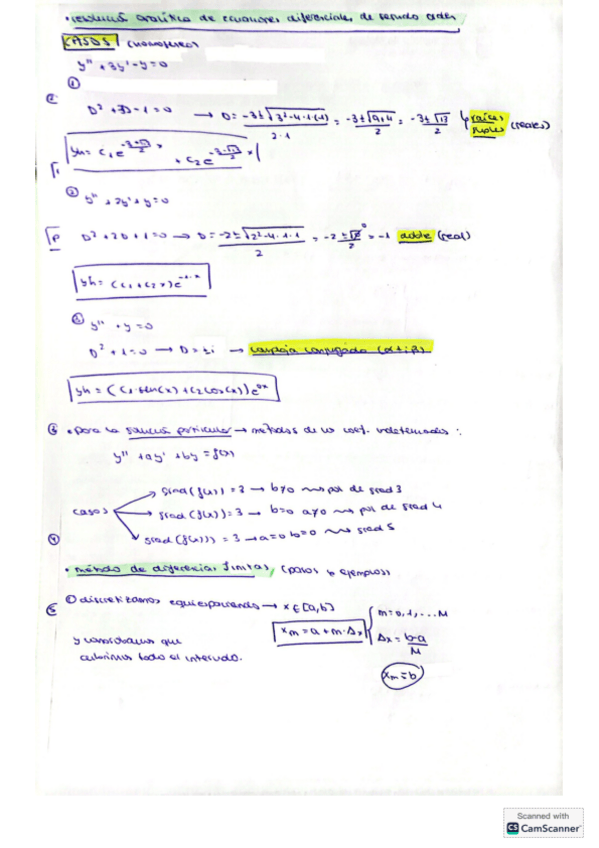 • resolución analítica de ecuaciones diferenciales de segundo orden
CASOS (homogéneo)
y'' + 3y' - y = 0
①
D² + 3D - 1 = 0 → D = -3±√3²-4·1·(-1) / 2·1 = -3±√9+4 / 2 = -3±√13 / 2 raíces simples (reales)
yh = C₁e^(-3+√13/2)x + C₂e^(-3-√13/2)x
② y'' + 2y' + y = 0
D² + 2D + 1 = 0 → D = -2±√2²-4·1·1 / 2 = -2±√0 / 2 = -1 doble (real)
yh = (C₁+C₂x)e^-1·x
③ y'' + y = 0
D² + 1 = 0 → D = ±i → compleja conjugada (α±iβ)
yh = (C₁·sen(x)+C₂cos(x))e^0x
• para la solución particular → métodos de los coef. indeterminados:
y'' + ay' + by = f(x)
casos
grad(f(x)) = 3 → b≠0 ⟿ pol de grad 3
grad(f(x)) = 3 → b=0 a≠0 ⟿ pol de grad 4
grad(f(x)) = 3 → a=0 b=0 ⟿ grad 5
• método de diferencias finitas, (pasos y ejemplos)
① discretizamos equiespaciando → x∈[a,b]
xₘ = a + m·Δx
m=0,1,...M
Δx = b-a / M
y consideramos que
cubrimos todo el intervalo.
xₘ = b
Scanned with
CS CamScanner